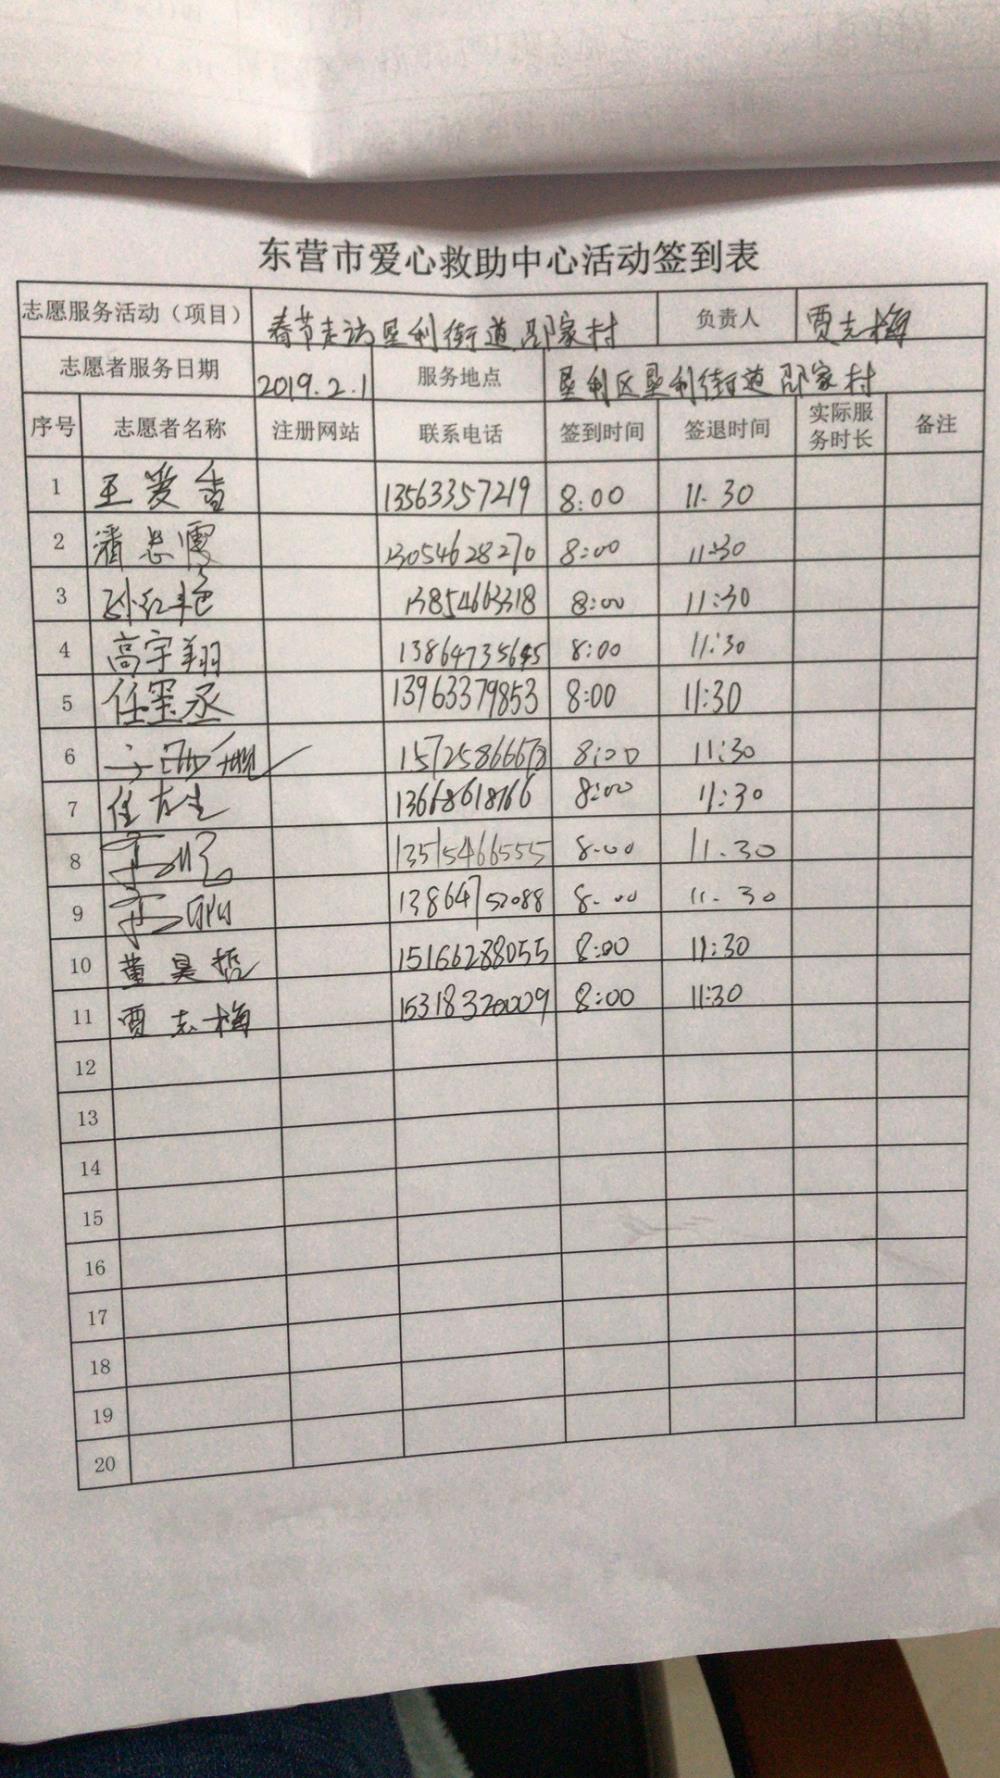 东营市爱心救助中心活动签到表
志愿服务活动（项目） 春节走访垦利街道邵家村 负责人 贾志梅
志愿者服务日期 2019.2.1 服务地点 垦利区垦利街道邵家村
序号 志愿者名称 注册网站 联系电话 签到时间 签退时间 实际服务时长 备注
1 王爱香 13563357219 8:00 11.30
2 潘志霞 13054628270 8:00 11:30
3 孙红艳 13854663318 8:00 11:30
4 高宇翔 13864735645 8:00 11:30
5 任墨丞 13963379853 8:00 11:30
6 8:00 11:30
7 任友生 13668618766 8:00 11:30
8 13515466555 8.00 11.30
9 13864752088 8.00 11.30
10 董昊哲 15166288055 8:00 11:30
11 贾志梅 15318320009 8:00 11:30
12
13
14
15
16
17
18
19
20